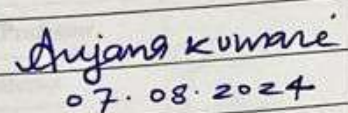 Anjana Kumari
07.08.2024